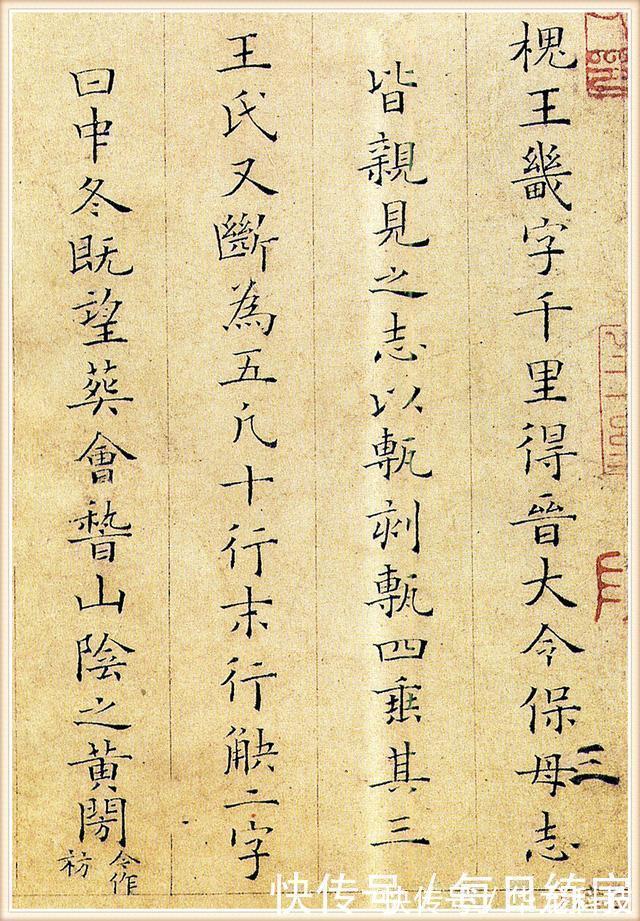 槐王畿字千里得晉大令保母志
三
皆親見之志以甎刻甎四垂其三
王氏又斷為五凡十行末行觖二字
曰中冬既望葬會稽山陰之黃閍
今作
祊
快传号/每日练字